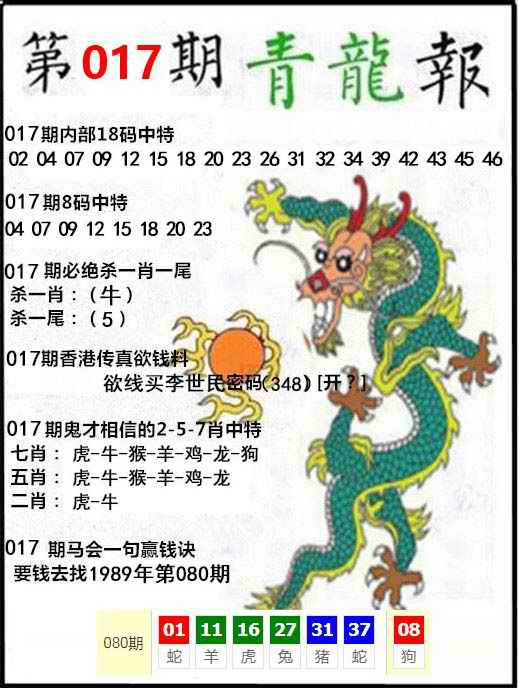 第017期青龍報
017期内部18码中特
02 04 07 09 12 15 18 20 23 26 31 32 34 39 42 43 45 46
017期8码中特
04 07 09 12 15 18 20 23
017 期必绝杀一肖一尾
杀一肖：（牛）
杀一尾：（5）
017期香港传真欲钱料
欲线买李世民密码(348)[开?]
017期鬼才相信的2-5-7肖中特
七肖：虎-牛-猴-羊-鸡-龙-狗
五肖：虎-牛-猴-羊-鸡-龙
二肖：虎-牛
017 期马会一句赢钱诀
要钱去找1989年第080期
080期 01 11 16 27 31 37 08
蛇 羊 虎 兔 猪 蛇 狗